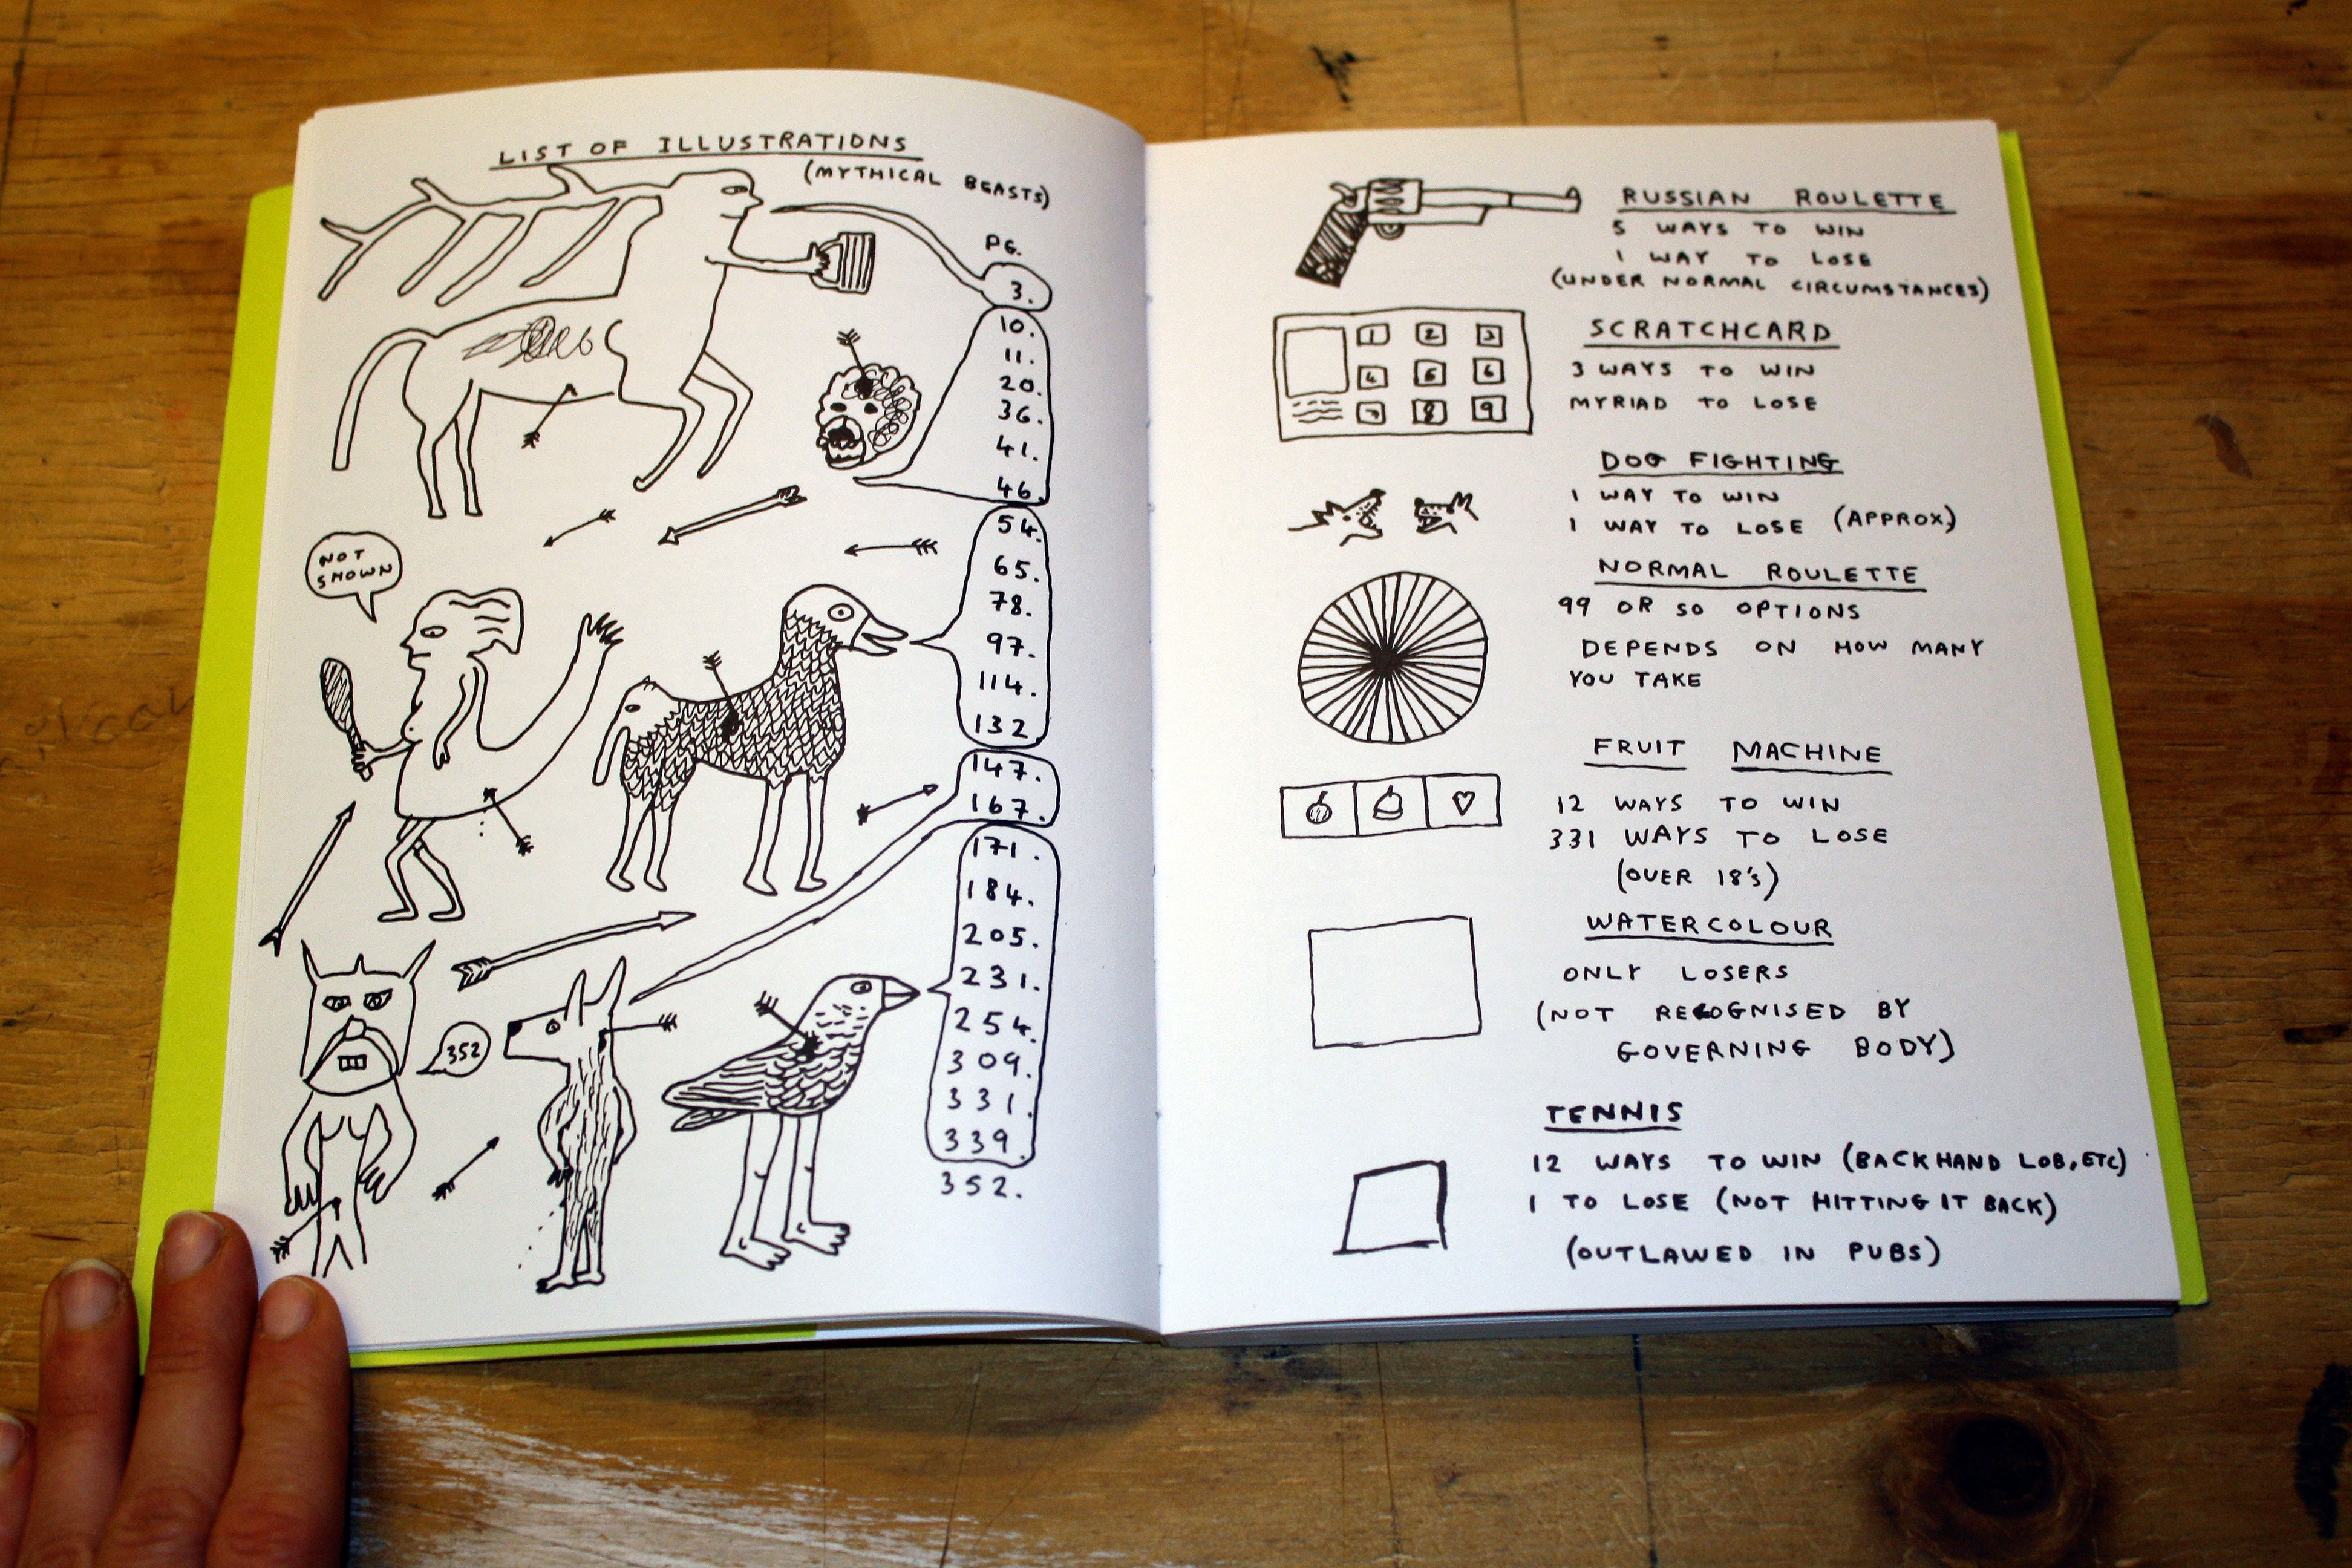 LIST OF ILLUSTRATIONS
(MYTHICAL BEASTS)
PG.
3.
10.
11.
20.
36.
41.
46.
54.
65.
78.
97.
114.
132.
147.
167.
171.
184.
205.
231.
254.
309.
331.
339.
352.
NOT
SHOWN
352
RUSSIAN ROULETTE
5 WAYS TO WIN
1 WAY TO LOSE
(UNDER NORMAL CIRCUMSTANCES)
1 2 3
4 5 6
7 8 9
SCRATCHCARD
3 WAYS TO WIN
MYRIAD TO LOSE
DOG FIGHTING
1 WAY TO WIN
1 WAY TO LOSE (APPROX)
NORMAL ROULETTE
99 OR SO OPTIONS
DEPENDS ON HOW MANY
YOU TAKE
FRUIT MACHINE
12 WAYS TO WIN
331 WAYS TO LOSE
(OVER 18's)
WATERCOLOUR
ONLY LOSERS
(NOT RECOGNISED BY
GOVERNING BODY)
TENNIS
12 WAYS TO WIN (BACKHAND LOB, ETC)
1 TO LOSE (NOT HITTING IT BACK)
(OUTLAWED IN PUBS)